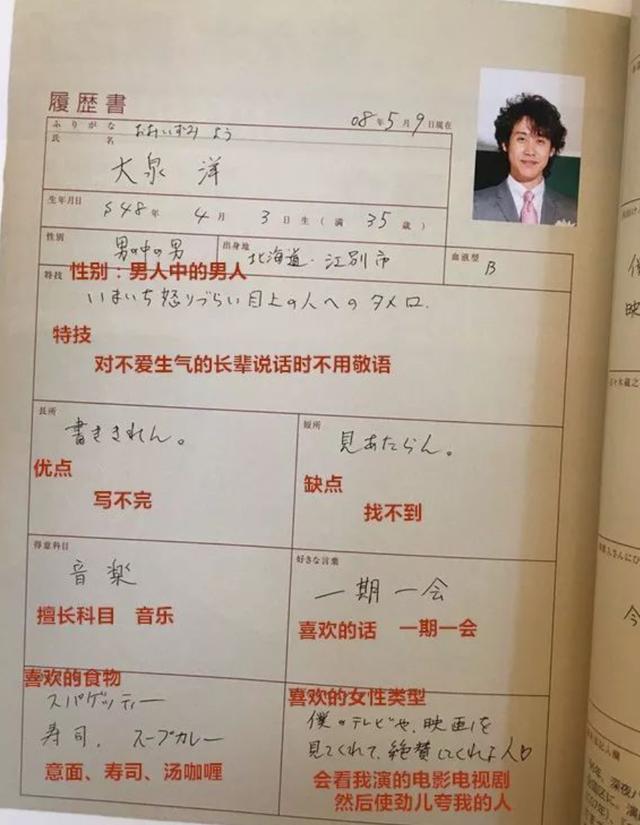 履歴書
08年5月9日現在
ふりがな おおいずみ よう
氏名
大泉 洋
生年月日 S48年 4月 3日生(満 35歳)
性別 男の中の男 出身地 北海道・江別市 血液型 B
性别:男人中的男人
特技
いまいち怒りづらい目上の人へのタメ口。
特技
对不爱生气的长辈说话时不用敬语
長所
書ききれん。
优点
写不完
短所
見あたらん。
缺点
找不到
得意科目
音楽
擅长科目 音乐
好きな言葉
一期一会
喜欢的话 一期一会
喜欢的食物
スパゲッティー
寿司、スープカレー
意面、寿司、汤咖喱
喜欢的女性类型
僕のテレビや、映画を
見てくれて、絶賛してくれる人
会看我演的电影电视剧
然后使劲儿夸我的人
僕
映
佐々木蔵之
今